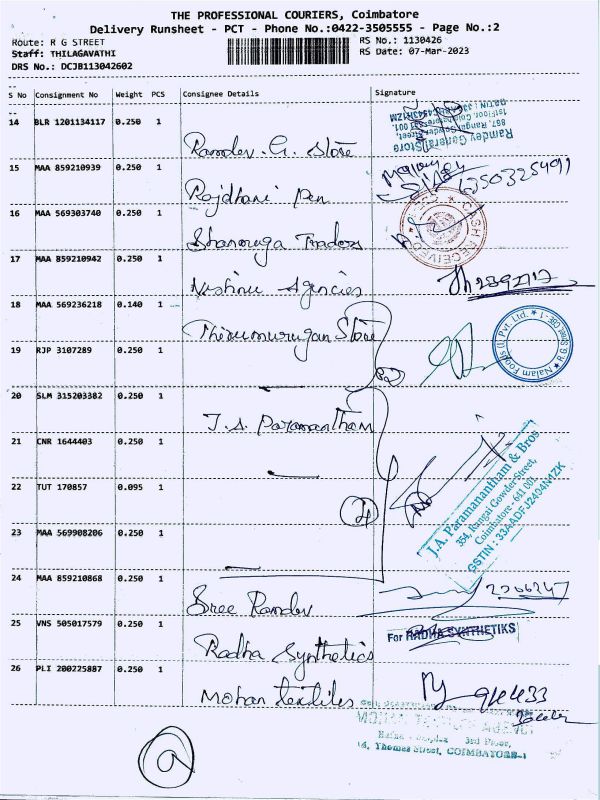 THE PROFESSIONAL COURIERS, Coimbatore
Delivery Runsheet - PCT - Phone No.:0422-3505555 - Page No.:2
Route: R G STREET
Staff: THILAGAVATHI
DRS No.: DCJB113042602
RS No.: 1130426
RS Date: 07-Mar-2023
S No Consignment No Weight PCS Consignee Details Signature
14 BLR 1201134117 0.250 1
Ramdev. G. Store
Ramdev General Store
867, Rangai Gowder Street,
1stFloor, Coimbatore-641 001.
15 MAA 859210939 0.250 1
Rajdhani Pen
16 MAA 569303740 0.250 1
Shanmuga Traders
CASH RECEIVED
17 MAA 859210942 0.250 1
Vishnu Agencies
18 MAA 569236218 0.140 1
Thirumurugan Store
Nalam Foods (I) Pvt. Ltd.
19 RJP 3107289 0.250 1
20 SLM 315203382 0.250 1
J.A. Paramantham
21 CNR 1644403 0.250 1
22 TUT 170857 0.095 1
4
J.A. Paramanantham & Bros
354, Rangai Gowder Street,
Coimbatore - 641 001
GSTIN : 33AADFJ2404N1ZK
23 MAA 569908206 0.250 1
24 MAA 859210868 0.250 1
Sree Ramdev
25 VNS 505017579 0.250 1
Radha Synthetics
For RADHA SYNTHETIKS
26 PLI 200225887 0.250 1
Mohan textiles
3rd Floor,
Thomas Street, COIMBATORE-1
a